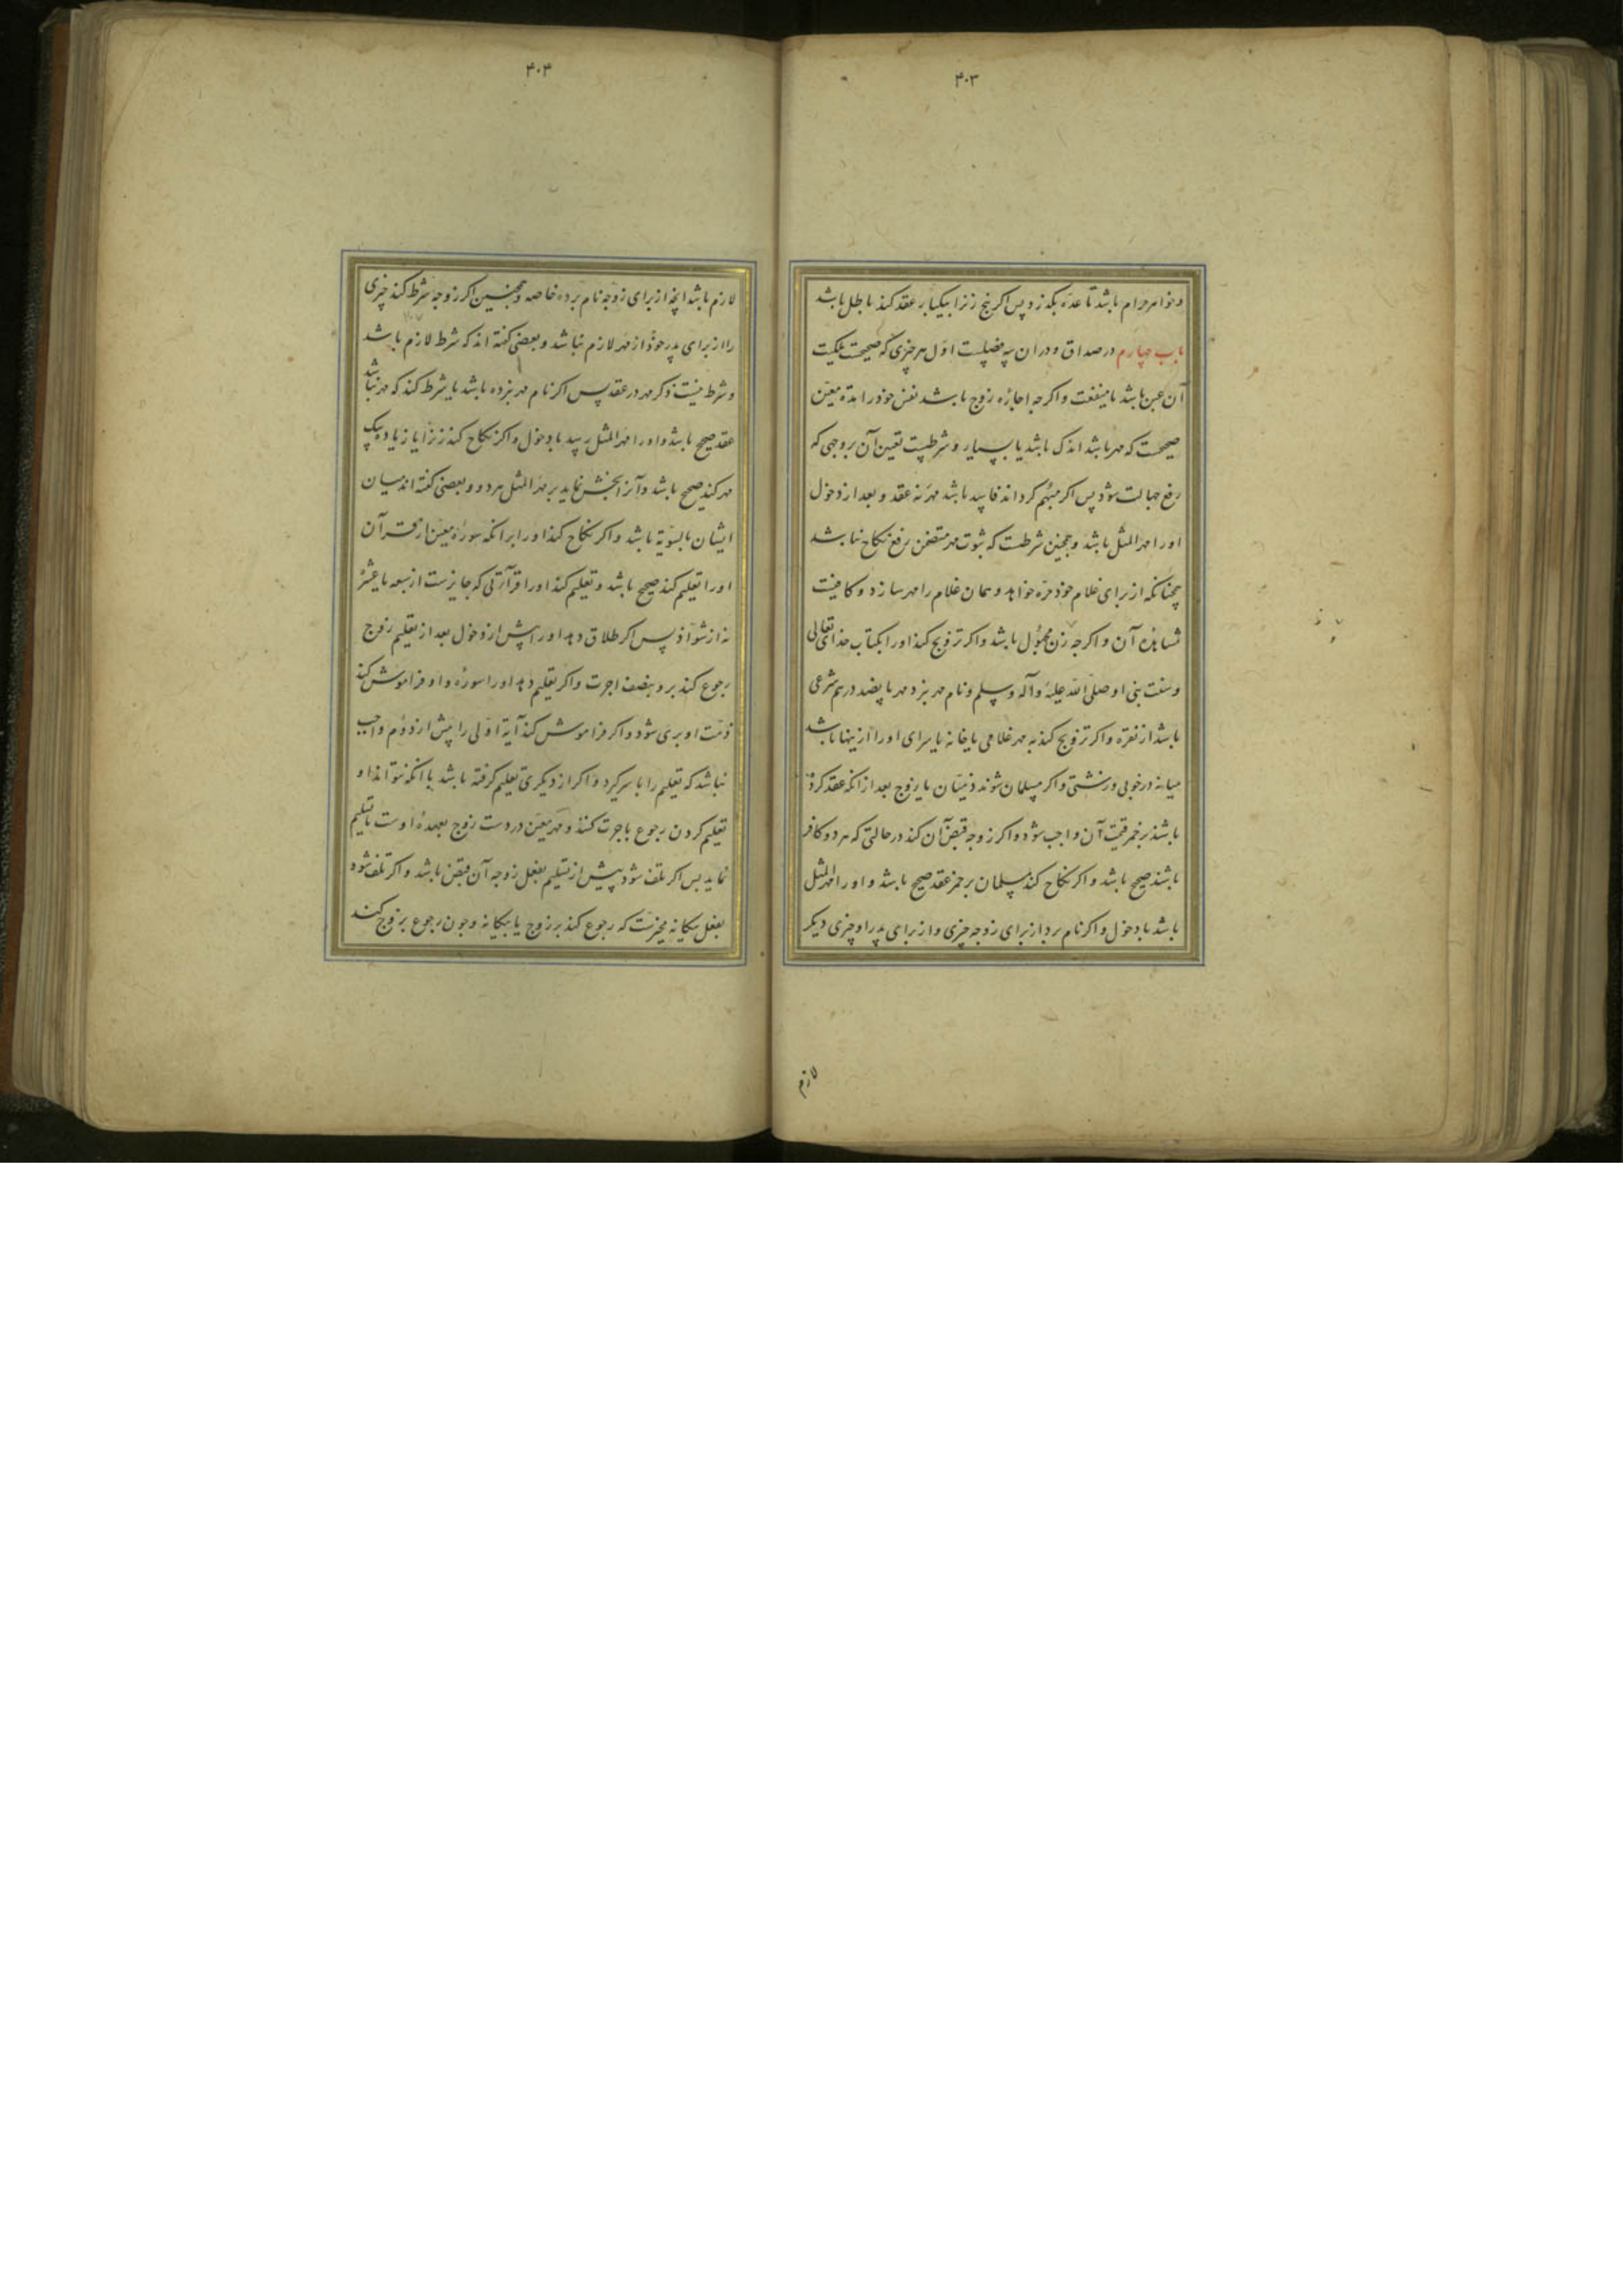 ۴۰۳
و خواهر حرام باشد تا عده بکذرد پس اکر پنج زنرا بیکبار عقد کند باطل باشد
باب چهارم در صداق و دران سه فصلست اول هر چیزی که صحیحست ملکیت
آن عین باشد یا منفعت و اکرچه اجاره زوج باشد نفس خود را مدة معین
صحیحست که مهر باشد اندک باشد یا بسیار و شرطست تعین آن بر وجهی که
رفع جهالت شود پس اکر مبهم کرداند فاسد باشد مهر نه عقد و بعد از دخول
او را مهر المثل باشد و همچنین شرطست که ثبوت مهر متضمن رفع نکاح نباشد
چنانکه از برای غلام خود حره خواهد و همان غلام را مهر سازد و کافیست
مشاهده آن و اکرچه وزن مجهول باشد و اکر تزویج کند او را بکتاب خدای تعالی
و سنت نبی او صلی الله علیه وآله وسلم و نام مهر نبرد مهر پانصد درهم شرعی
باشد از نقره و اکر تزویج کند به مهر غلامی یا خانه یا سرای او را ازینها باشد
میانه در خوبی و زشتی و اکر مسلمان شوند ذمیان یا زوج بعد از انکه عقد کرده
باشند بر خمر قیمت آن واجب شود و اکر زوجه قبض آن کند در حالتی که هر دو کافر
باشند صحیح باشد و اکر نکاح کند مسلمان بر خمر عقد صحیح باشد و او را مهر المثل
باشد با دخول و اکر نام برد از برای زوجه چیزی و از برای پدر او چیزی دیکر
لازم
۴۰۴
لازم باشد انچه از برای زوجه نام برده خاصه و همچنین اکر زوجه شرط کند چیزی
را از برای پدر خود از مهر لازم نباشد و بعضی کفته اند که شرط لازم باشد
و شرط نیست ذکر مهر در عقد پس اکر نام مهر نبرده باشد یا شرط کند که مهر نباشد
عقد صحیح باشد و او را مهر المثل رسد با دخول و اکر نکاح کند دو زنرا یا زیاده بیک
مهر کند صحیح باشد و آنرا بخش نماید بر مهر المثل هر دو و بعضی کفته اند میان
ایشان بالسویه باشد و اکر نکاح کند او را بر انکه سوره معین از قرآن
او را تعلیم کند صحیح باشد و تعلیم کند او را قرآءتی که جایزست از سبعه یا عشره
نه از شواذ پس اکر طلاق دهد او را پیش از دخول بعد از تعلیم زوج
رجوع کند برو بنصف اجرت و اکر تعلیم دهد او را سوره و او فراموش کند
ذمت او بری شود و اکر فراموش کند آیة اولی را پیش از دوم واجب
نباشد که تعلیم را با سر کیرد و اکر از دیکری تعلیم کرفته باشد یا انکه نتواند او
تعلیم کردن رجوع باجرت کند و مهر معین در دست زوج بعهده اوست تا تسلیم
نماید پس اکر تلف شود پیش از تسلیم بفعل زوجه آن قبض باشد و اکر تلف شود
بفعل بیکانه مخیرست که رجوع کند بر زوج یا بیکانه و چون رجوع بر زوج کند